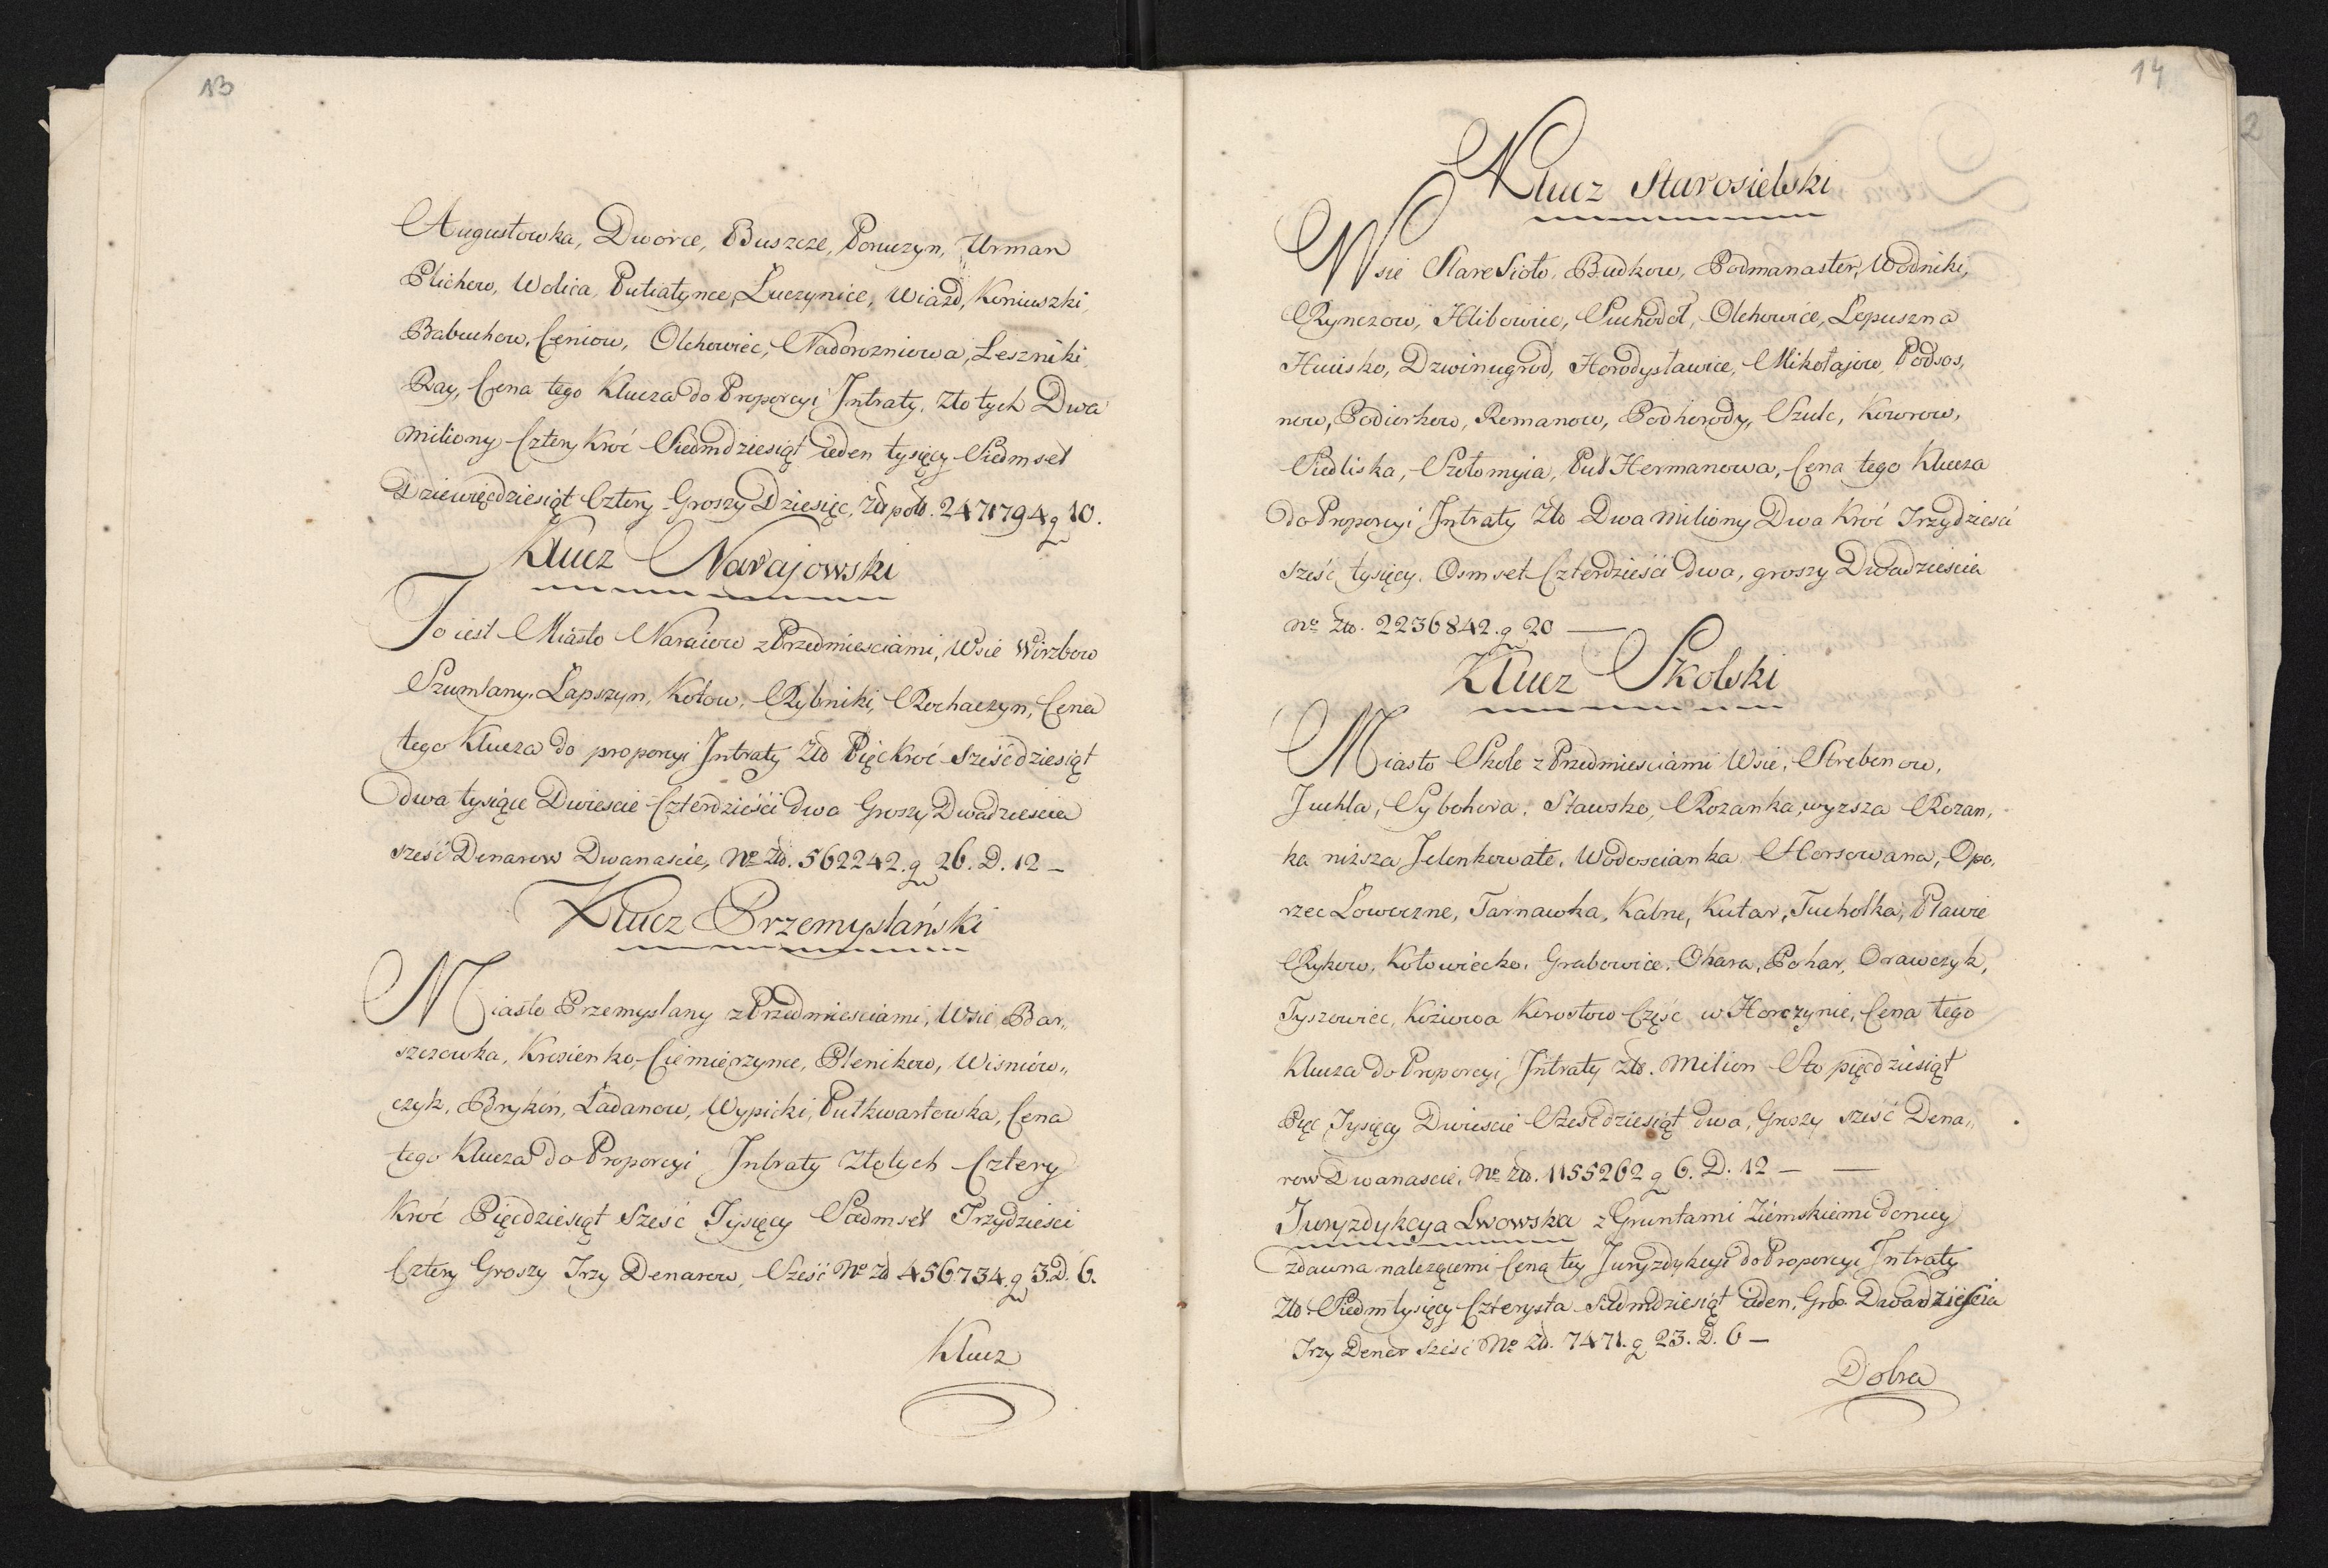 13
Augustowka, Dworce, Buszcze, Poruczyn, Urman
Plichow, Wolica, Putiatynce, Luczynice, Uiazd, Koniuszki,
Babuchow, Ceniow, Olchowiec, Nadorozniowa, Leszniki
Ray, Cena tego Klucza do Proporcyi Intraty, Złotych Dwa
miliony Cztery Kroć Siedmdziesiąt ieden tysięcy Siedmset
Dziewięćdziesiąt Cztery Groszy Dziesięć, Złł pols. 2471794 g 10.
Klucz Narajowski
To iest Miasto Naraiow z Przedmiesciami, Wsie Wirzbow
Szumlany, Lapszyn, Kotow, Rybniki, Rochaczyn, Cena
tego Klucza do proporcyi Intraty Złł Pięckroć Sześćdziesiąt
dwa tysiące Dwiescie Czterdzieści dwa Groszy Dwadziescia
sześć Denarow Dwanascie, No Złł. 562242. g 26. D. 12 –
Klucz Przemyslański
Miasto Przemyslany z Przedmiesciami, Wsie Bar„
szczowka, Krosienko, Ciemierzynce, Plenikow, Wisniow„
czyk, Brykon, Ladanow, Wypicki, Putkwartowka, Cena
tego Klucza do Proporcyi Intraty Złotych Cztery
Kroć Pięcdziesiąt Sześć Tysięcy Siedmset Trzydzieści
Cztery Groszy Trzy Denarow, Sześć No Złł 456734. g 3. D. 6.
Klucz
14
2
Klucz Starosielski
Wsie Stare Sioło, Budkow, Podmanaster, Wodniki,
Rynczow, Hlibowice, Suchodoł, Olchowice, Lopuszna
Huisko, Dzwinugrod, Horodysławice, Mikołajow, Podsos,
now, Podiorkow, Romanow, Podhorody, Szule, Koworow,
Siedliska, Szołomyja, Puł Hermanowa, Cena tego Klucza
do Proporcyi Intraty Złł Dwa miliony Dwa Kroć Trzydzieści
sześć tysięcy. Osmset Czterdzieści dwa, groszy Dwadziescia
No Złł. 2236842. g 20 –
Klucz Skolski
Miasto Skole z Przedmiesciami Wsie, Strebenow,
Juchla, Sybohora, Stawsko, Rozanka, wyzsza Rozan,
ka nizsza Jelenkowate, Wodoscianka Horsowana, Opo,
rzec Lowoczne, Tarnawka, Kalne, Kutar, Tucholka, Plawie
Rykow, Kołowiecko, Grabowice, Ohara, Pohar, Orawczyk,
Tyszowiec, Koziowa Korostow Część w Horczynie, Cena tego
Klucza do Proporcyi Intraty Złł. Milion Sto pięćdziesiąt
Pięć Tysięcy Dwiescie Sześćdziesiąt dwa, Groszy sześć Dena„
row Dwanascie, No Złł. 1155262 g 6. D. 12 – –
Juryzdykcya Lwowska z Gruntami Ziemskiemi doniey
zdawna nalezącemi Cena tey Juryzdykcyi do Proporcyi Intraty
Złł Siedm tysięcy Czterysta Siedmdziesiąt ieden, Gro. Dwadzieścia
Trzy Denar sześć No Złł. 7471. g 23. D. 6 –
Dobra